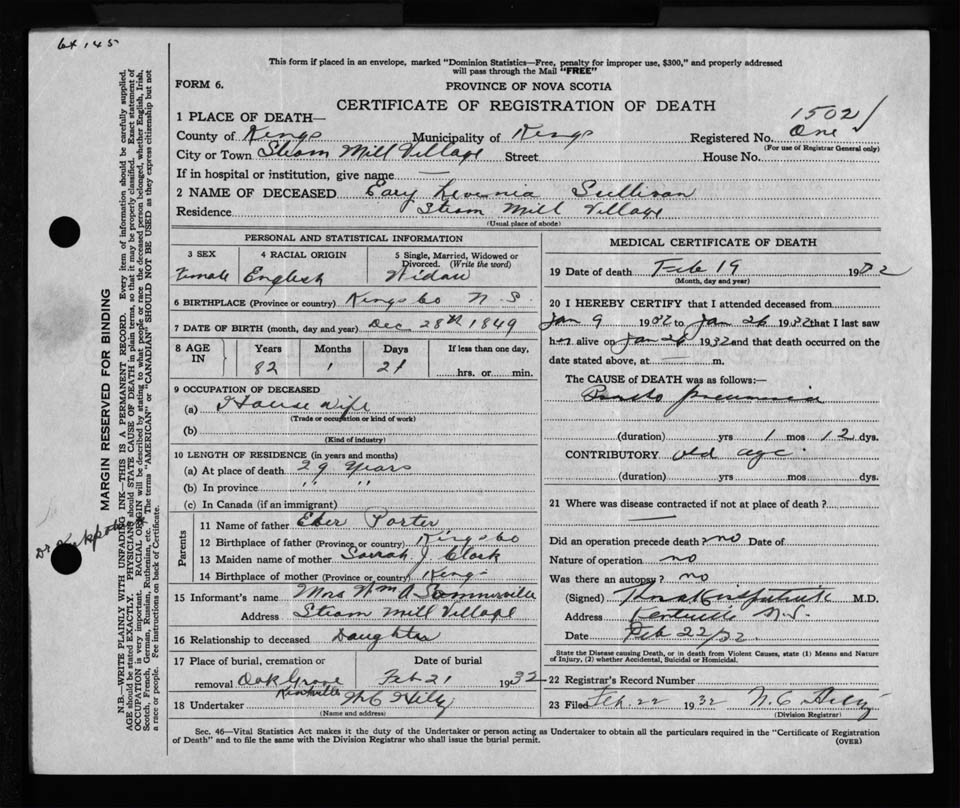 6x 145
This form if placed in an envelope, marked "Dominion Statistics—Free, penalty for improper use, $300," and properly addressed
will pass through the Mail "FREE"
FORM 6.
PROVINCE OF NOVA SCOTIA
CERTIFICATE OF REGISTRATION OF DEATH
1 PLACE OF DEATH—
1502
County of Kings Municipality of Kings Registered No. One
(For use of Registrar General only)
City or Town Steam Mill Village Street House No.
If in hospital or institution, give name —
2 NAME OF DECEASED Levernia Sullivan
Residence Steam Mill Village
(Usual place of abode)
PERSONAL AND STATISTICAL INFORMATION
3 SEX 4 RACIAL ORIGIN 5 Single, Married, Widowed or Divorced. (Write the word)
Female English Widow
6 BIRTHPLACE (Province or country) Kings Co N. S.
7 DATE OF BIRTH (month, day and year) Dec 28th 1849
8 AGE IN Years Months Days If less than one day,
82 1 21 hrs. or min.
9 OCCUPATION OF DECEASED
(a) House Wife
(Trade or occupation or kind of work)
(b)
(Kind of industry)
10 LENGTH OF RESIDENCE (in years and months)
(a) At place of death 29 Years
(b) In province " "
(c) In Canada (if an immigrant)
Parents
11 Name of father Eber Porter
12 Birthplace of father (Province or country) Kings Co
13 Maiden name of mother Sarrah J Clark
14 Birthplace of mother (Province or country) Kings
15 Informant's name Mrs Wm A Sommerville
Address Steam Mill Village
16 Relationship to deceased Daughter
17 Place of burial, cremation or removal Oak Grove Kentville
Date of burial Feb 21 1932
18 Undertaker
(Name and address)
MEDICAL CERTIFICATE OF DEATH
19 Date of death Feb 19 1932
(Month, day and year)
20 I HEREBY CERTIFY that I attended deceased from
Jan 9 1932 to Jan 26 1932 that I last saw
her alive on Jan 26 1932 and that death occurred on the
date stated above, at — m.
The CAUSE of DEATH was as follows:—
pneumonia
(duration) yrs 1 mos 12 dys.
CONTRIBUTORY old age
(duration) yrs mos dys.
21 Where was disease contracted if not at place of death?
—
Did an operation precede death? no Date of
Nature of operation no
Was there an autopsy? no
(Signed) M.D.
Address Kentville N.S.
Date Feb 22/32
State the Disease causing Death, or in death from Violent Causes, state (1) Means and Nature
of Injury, (2) whether Accidental, Suicidal or Homicidal.
22 Registrar's Record Number
23 Filed Feb. 22 1932
(Division Registrar)
Sec. 46—Vital Statistics Act makes it the duty of the Undertaker or person acting as Undertaker to obtain all the particulars required in the "Certificate of Registration
of Death" and to file the same with the Division Registrar who shall issue the burial permit.
(OVER)
MARGIN RESERVED FOR BINDING
N.B.—WRITE PLAINLY WITH UNFADING INK—THIS IS A PERMANENT RECORD. Every item of information should be carefully supplied.
AGE should be stated EXACTLY. PHYSICIANS should STATE CAUSE OF DEATH in plain terms, so that it may be properly classified. Exact statement of
OCCUPATION is very important. RACIAL ORIGIN will be described by stating to what people or race the deceased person belonged, whether English, Irish,
Scotch, French, German, Russian, Ruthenian, etc. The terms "AMERICAN" or "CANADIAN" SHOULD NOT BE USED as they express citizenship but not
a race or people. Fee instructions on back of Certificate.